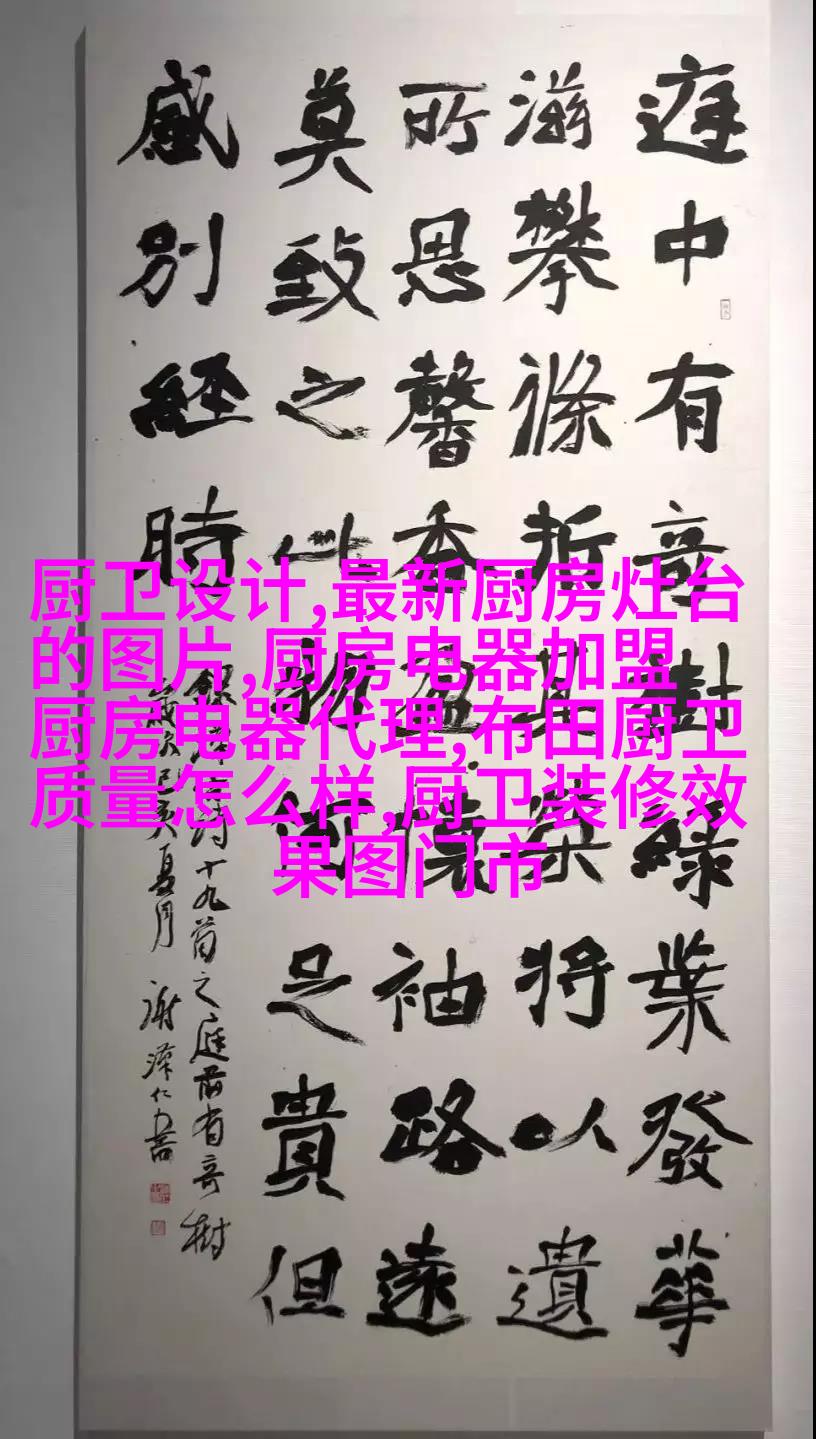 庭中有奇樹綠葉發華
滋攀條折其榮將以遺
所思馨香盈懷袖路遠
莫致之此足貴但
感別經時
錄古詩十九首之庭前有奇樹
歲次己亥夏月 謝澤仁書
厨卫设计,最新厨房灶台
的图片,厨房电器加盟
厨房电器代理,布田厨卫
质量怎么样,厨卫装修效
果图门市